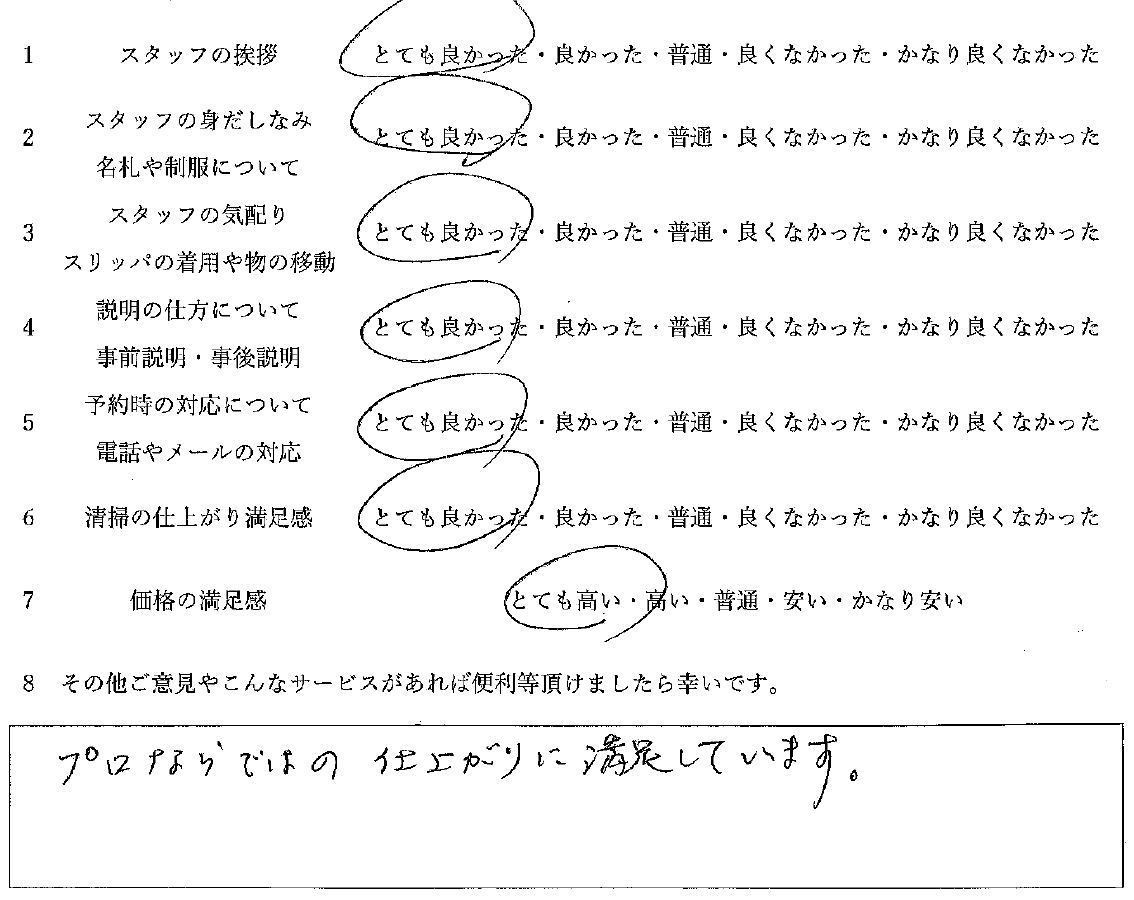 1 スタッフの挨拶 とても良かった・良かった・普通・良くなかった・かなり良くなかった
スタッフの身だしなみ
2 とても良かった・良かった・普通・良くなかった・かなり良くなかった
名札や制服について
スタッフの気配り
3 とても良かった・良かった・普通・良くなかった・かなり良くなかった
スリッパの着用や物の移動
説明の仕方について
4 とても良かった・良かった・普通・良くなかった・かなり良くなかった
事前説明・事後説明
予約時の対応について
5 とても良かった・良かった・普通・良くなかった・かなり良くなかった
電話やメールの対応
6 清掃の仕上がり満足感 とても良かった・良かった・普通・良くなかった・かなり良くなかった
7 価格の満足感 とても高い・高い・普通・安い・かなり安い
8 その他ご意見やこんなサービスがあれば便利等頂けましたら幸いです。
プロならではの 仕上がりに満足しています。